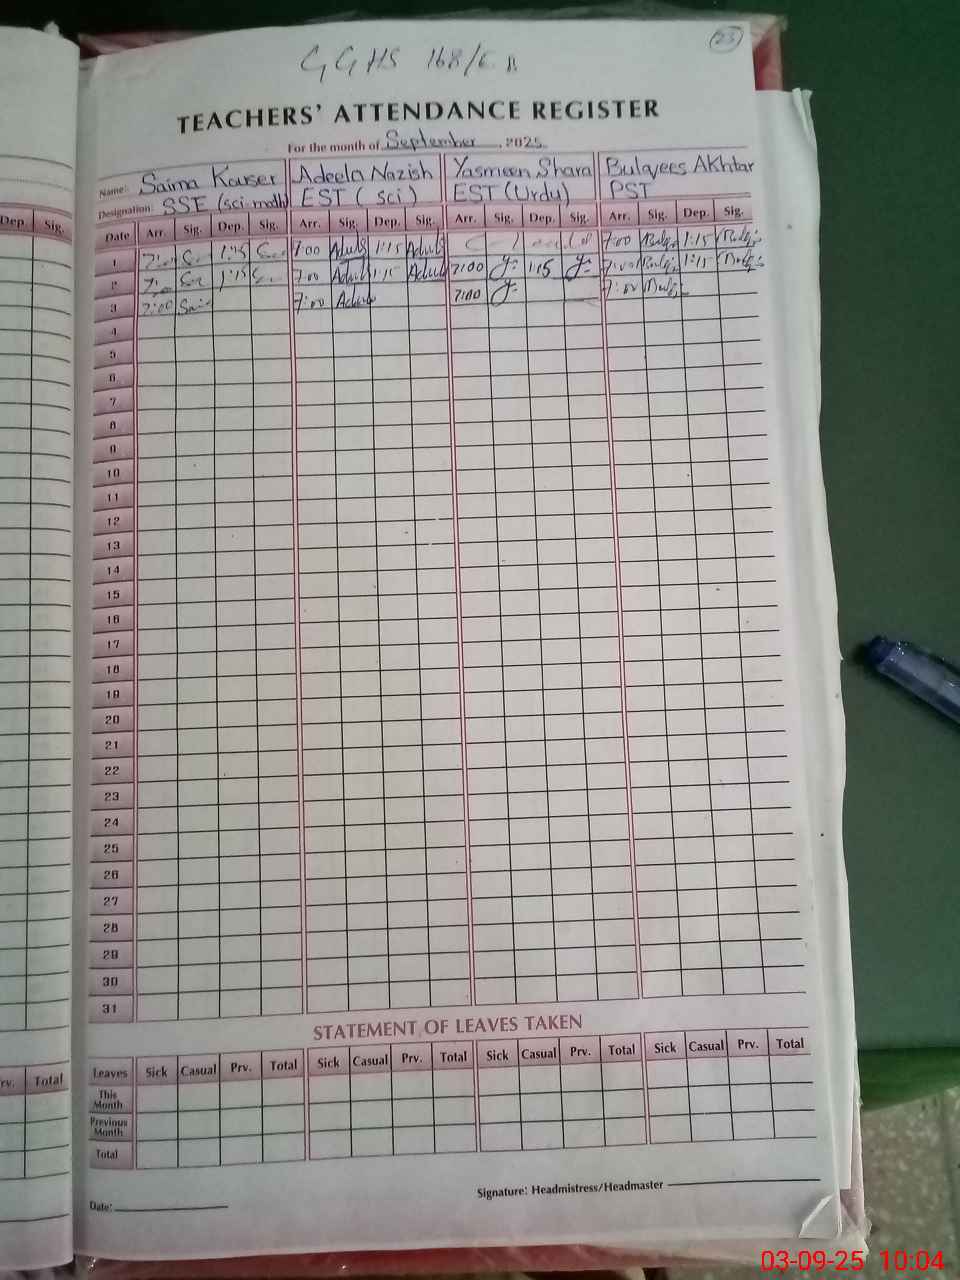 23
GGHS 168/6 R
TEACHERS' ATTENDANCE REGISTER
For the month of September, 2025
Name: Saima Kauser Adeela Nazish Yasmeen Shara Bulqees Akhtar
Designation: SSE (sci-math) EST (sci) EST (Urdu) PST
Dep. Sig. Date Arr. Sig. Dep. Sig. Arr. Sig. Dep. Sig. Arr. Sig. Dep. Sig. Arr. Sig. Dep. Sig.
1 7:00 1:15 7:00 1:15 7:00 1:15
2 7:00 1:15 7:00 1:15 7:00 1:15 7:00 1:15
3 7:00 7:00 7:00 7:00
4
5
6
7
8
9
10
11
12
13
14
15
16
17
18
19
20
21
22
23
24
25
26
27
28
29
30
31
STATEMENT OF LEAVES TAKEN
rv. Total Leaves Sick Casual Prv. Total Sick Casual Prv. Total Sick Casual Prv. Total Sick Casual Prv. Total
This Month
Previous Month
Total
Signature: Headmistress/Headmaster
Date:
03-09-25 10:04